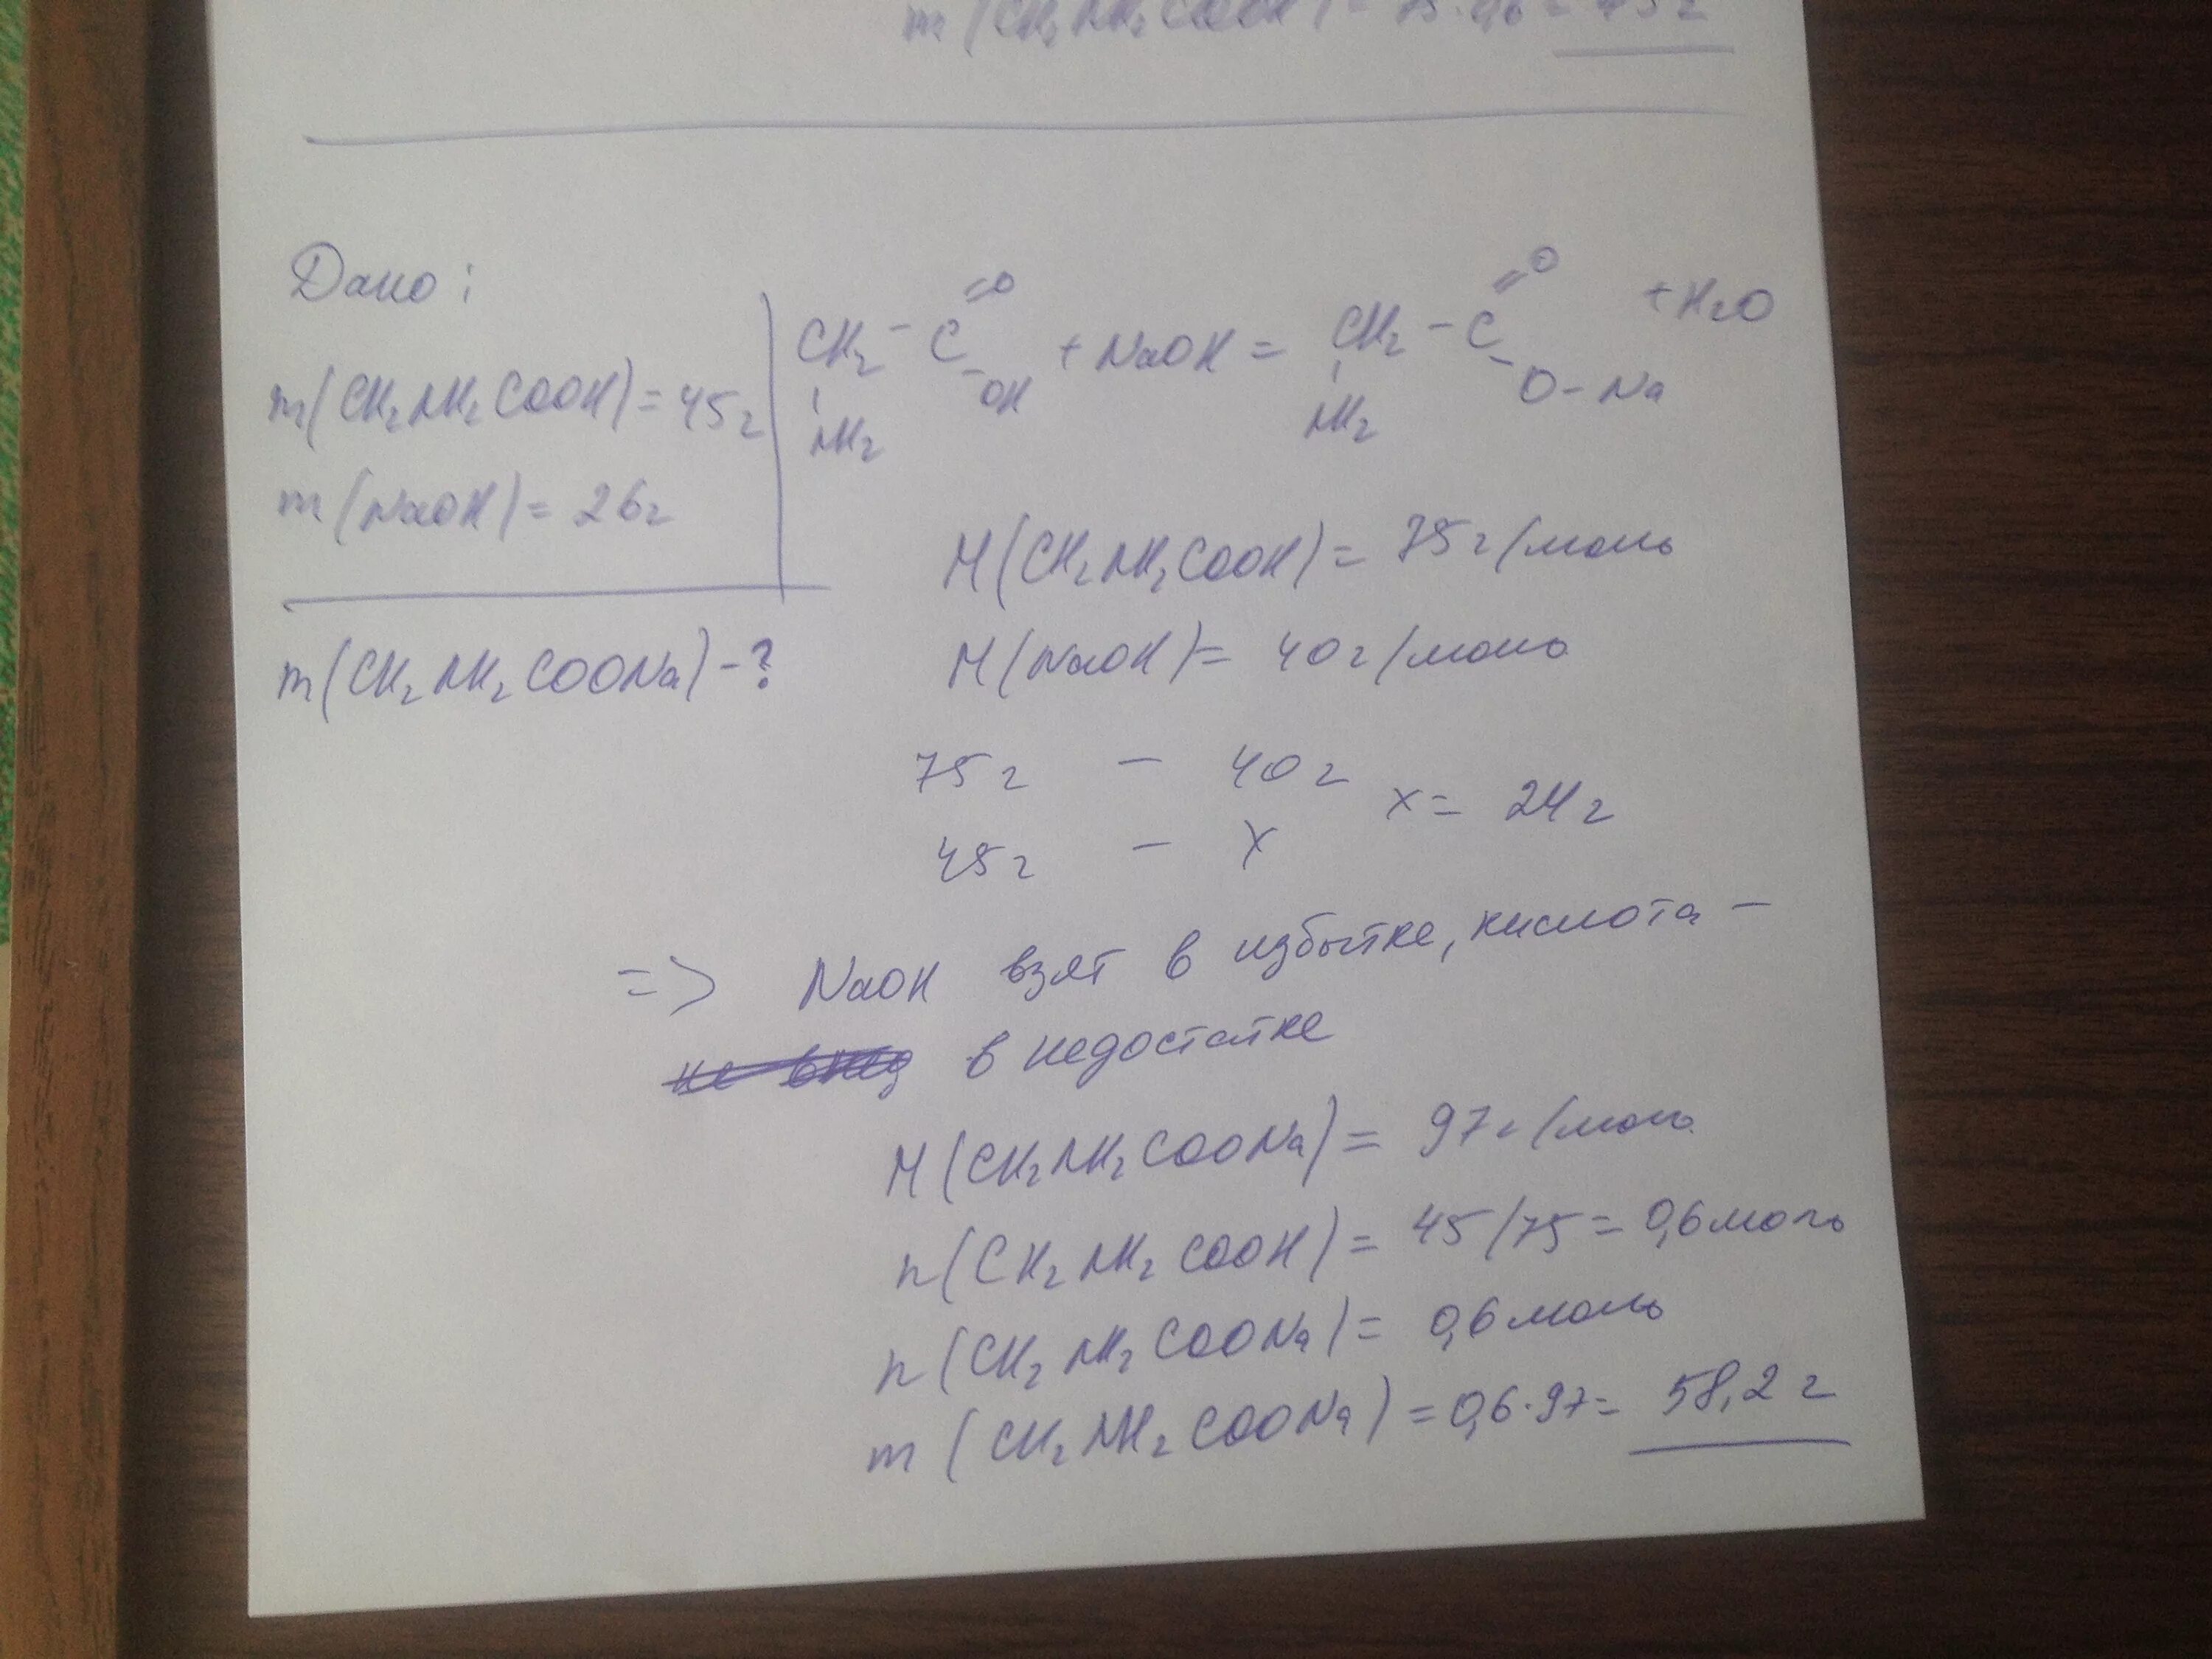 m(CH₂NH₂COOH) = 75·0,6 = 45 г
Дано:
m(CH₂NH₂COOH) = 45 г
m(NaOH) = 26 г
m(CH₂NH₂COONa) - ?
=O =O
CH₂ - C + NaOH = CH₂ - C + H₂O
- OH - O - Na
NH₂ NH₂
M(CH₂NH₂COOH) = 75 г/моль
M(NaOH) = 40 г/моль
75 г - 40 г
x = 24 г
45 г - x
=> NaOH взят в избытке, кислота -
в недостатке
M(CH₂NH₂COONa) = 97 г/моль
n(CH₂NH₂COOH) = 45/75 = 0,6 моль
n(CH₂NH₂COONa) = 0,6 моль
m(CH₂NH₂COONa) = 0,6·97 = 58,2 г